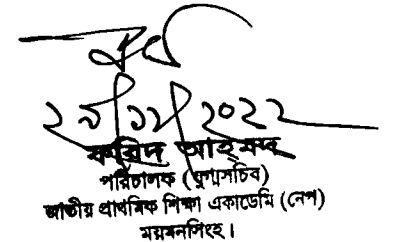 ২০২২
ফরিদ আহমদ
পরিচালক (যুগ্মসচিব)
জাতীয় প্রাথমিক শিক্ষা একাডেমি (নেপ)
ময়মনসিংহ।